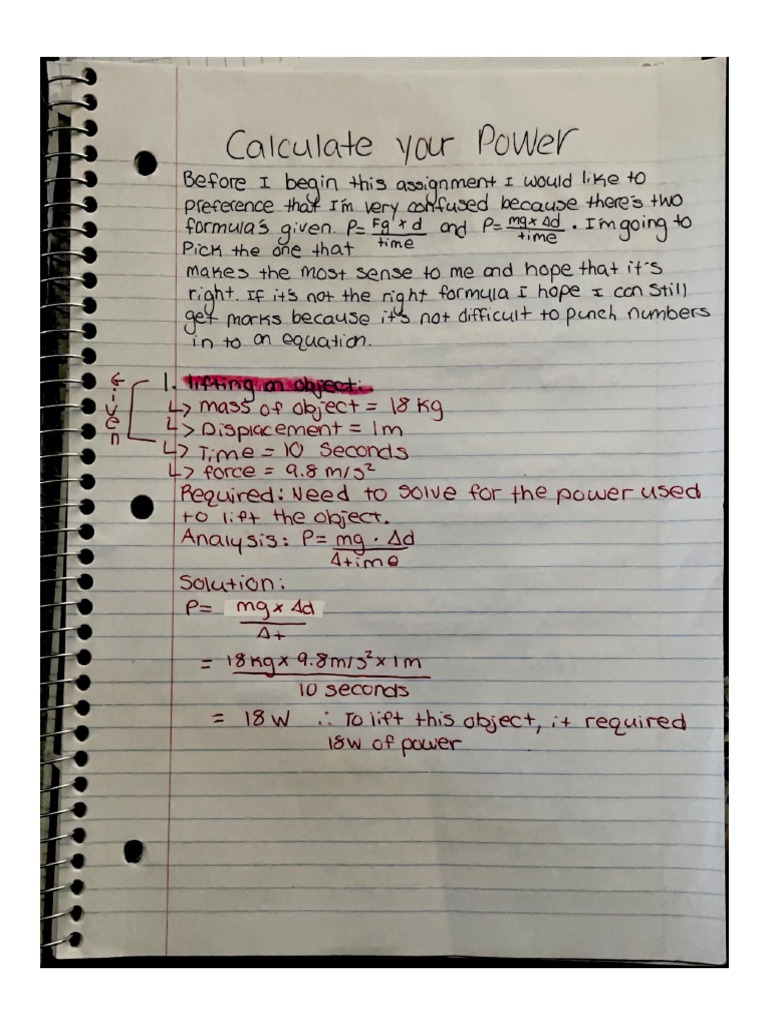 Calculate your Power
Before I begin this assignment I would like to
preference that I'm very confused because there's two
formula's given. P= Fg x d / time and P= mg x Δd / time . I'm going to
Pick the one that
makes the most sense to me and hope that it's
right. If it's not the right formula I hope I can still
get marks because it's not difficult to punch numbers
in to an equation.
Given
1. lifting an object:
↳ mass of object = 18 kg
↳ Displacement = 1m
↳ Time = 10 seconds
↳ force = 9.8 m/s²
Required: Need to solve for the power used
to lift the object.
Analysis: P= mg · Δd
Δtime
Solution:
P= mg x Δd
Δt
= 18kg x 9.8m/s² x 1m
10 seconds
= 18W ∴ To lift this object, it required
18W of power